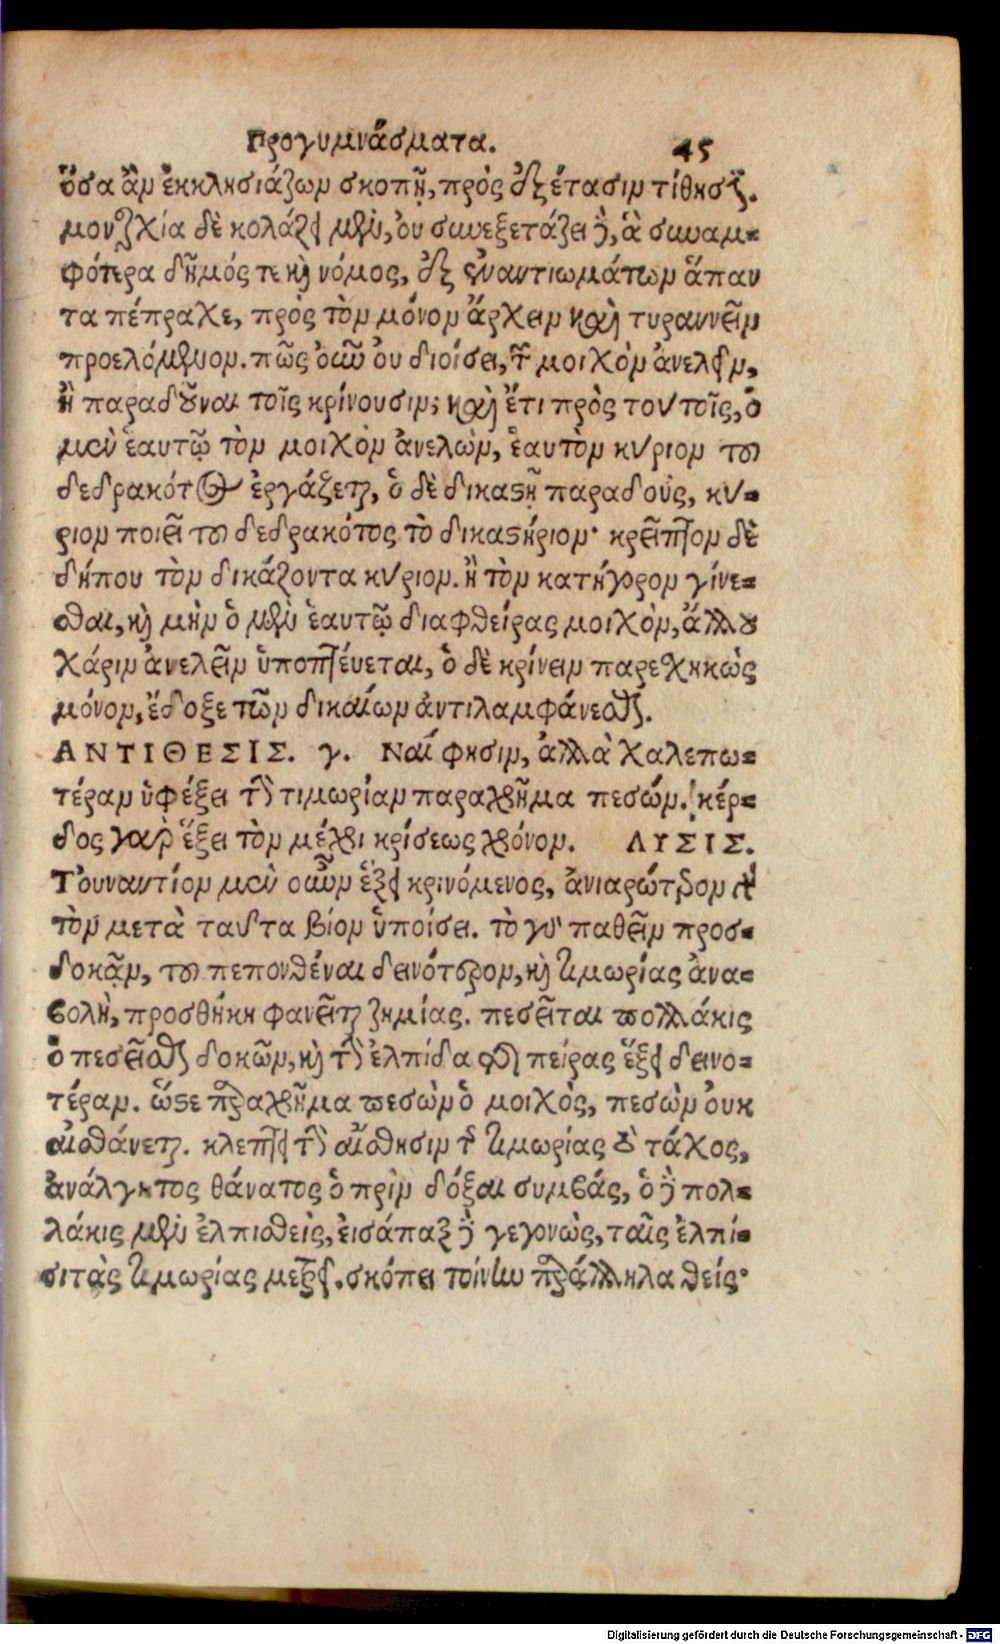 Προγυμνάσματα. 45
ὅσα ἂν ἐκκλησιάζων σκοπῇ, πρὸς ἐξέτασιν τίθησι.
μοναρχία δὲ κολάζει μὲν, οὐ συνεξετάζει δέ, ἃ συναμ-
φότερα δῆμός τε καὶ νόμος, ἐξ ἐναντιωμάτων ἅπαν
τα πέπραχε, πρὸς τὸν μόνον ἄρχειν καὶ τυραννεῖν
προελόμενον. πῶς οὖν οὐ διοίσει, τὸν μοιχὸν ἀνελεῖν,
ἢ παραδοῦναι τοῖς κρίνουσιν; καὶ ἔτι πρὸς τούτοις, ὁ
μὲν ἑαυτῷ τὸν μοιχὸν ἀνελὼν, ἑαυτὸν κύριον τοῦ
δεδρακότος ἐργάζεται, ὁ δὲ δικαστῇ παραδοὺς, κύ-
ριον ποιεῖ τοῦ δεδρακότος τὸ δικαστήριον· κρεῖττον δὲ
δήπου τὸν δικάζοντα κύριον. ἢ τὸν κατήγορον γίνε-
σθαι, καὶ μὴν ὁ μὲν ἑαυτῷ διαφθείρας μοιχὸν, ἄλλου
χάριν ἀνελεῖν ὑποπτεύεται, ὁ δὲ κρίνειν παρεσχηκὼς
μόνον, ἔδοξε τῶν δικαίων ἀντιλαμφάνεσθαι.
ΑΝΤΙΘΕΣΙΣ. γ. Ναί φησιν, ἀλλὰ χαλεπω-
τέραν ὑφέξει τὴν τιμωρίαν παραχρῆμα πεσών. κέρ-
δος γὰρ ἕξει τὸν μέχρι κρίσεως χρόνον. ΛΥΣΙΣ.
Τοὐναντίον μὲν οὖν ἕξει κρινόμενος, ἀνιαρώτερον γὰρ
τὸν μετὰ ταῦτα βίον ὑποίσει. τὸ γὰρ παθεῖν προσ-
δοκᾷν, τοῦ πεπονθέναι δεινότερον, καὶ τιμωρίας ἀνα-
βολὴ, προσθήκη φανεῖται ζημίας. πεσεῖται πολλάκις
ὁ πεσεῖσθαι δοκῶν, καὶ τὴν ἐλπίδα τῆς πείρας ἕξει δεινο-
τέραν. ὥστε παραχρῆμα πεσὼν ὁ μοιχὸς, πεσὼν οὐκ
αἰσθάνεται. κλέπτει τὴν αἴσθησιν τῆς τιμωρίας τὸ τάχος,
ἀνάλγητος θάνατος ὁ πρὶν δόξαι συμβάς, ὁ δὲ πολ-
λάκις μὲν ἐλπισθεὶς, εἰσάπαξ δὲ γεγονὼς, ταῖς ἐλπί-
σι τὰς τιμωρίας μετρεῖ. σκόπει τοίνυν παράλληλα θείς·
Digitalisierung gefördert durch die Deutsche Forschungsgemeinschaft - DFG